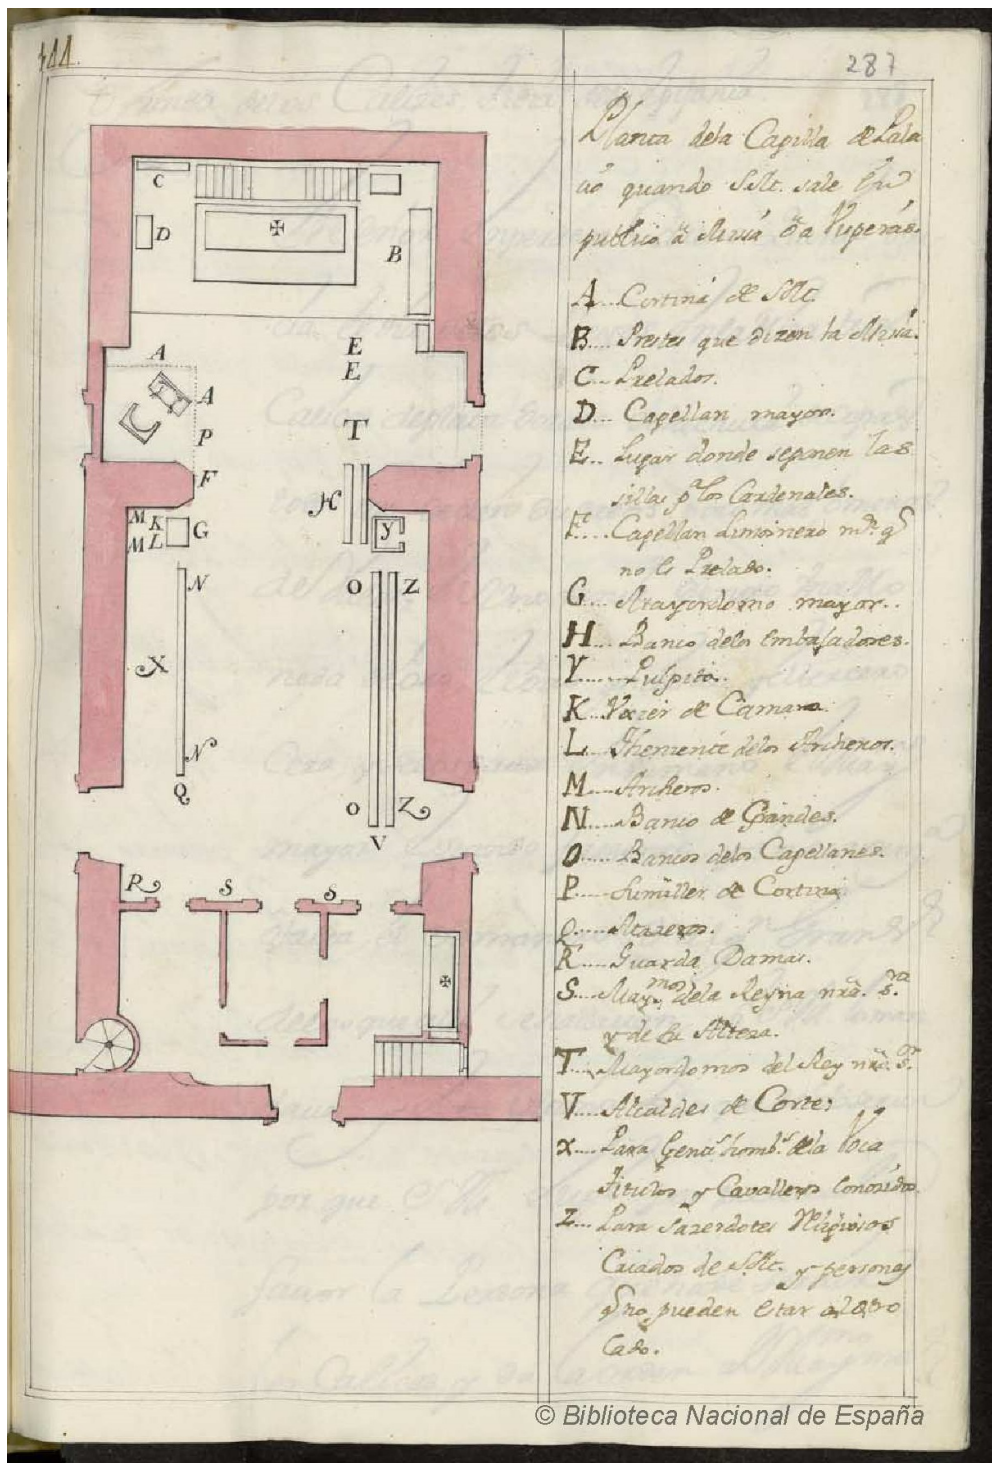 144
287
Planta dela Capilla de Pala
cio quando S.M. sale En
publico â Missâ ô a Visperas.
A....Cortina de S.M.
B....Prestes que dizen la Missa.
C...Prelados.
D... Capellan mayor.
E... Lugar donde seponen las
sillas pa los Cardenales.
F....Capellan Limosnero mr. q
no es Prelado.
G.... Mayordomo mayor..
H.... Banco delos Embajadores.
Y......Pulpito.
K...Vxier de Camara.
L... Theniente delos Archeros.
M.....Archeros.
N.....Banco de Grandes.
O..... Bancos delos Capellanes.
P.....Sumiller de Cortina
Q.....Mazeros.
R.....Guarda Damas.
S....Maymos. dela Reyna nra. sra
y de su Alteza.
T....Mayordomos del Rey nro. sr.
V.... Alcaldes de Corte.
X....Para Gentiles homb.s dela Voca
Titulos y Cavalleros Conozidos.
Z....Para Sazerdotes Religiosos
Criados de S.M. y personas
q no pueden estar al otro
lado.
C
D
B
E
E
A
A
P
T
F
H
M K
M L
G
Y
N
O
Z
X
N
Q
O
Z
V
R
S
S
© Biblioteca Nacional de España